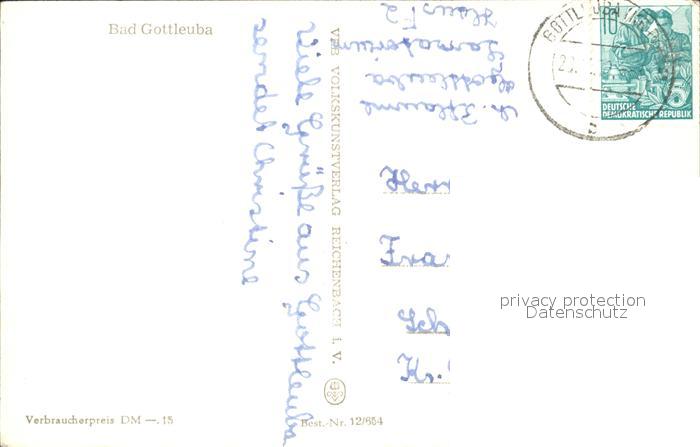 Bad Gottleuba
Viele Grüße aus Gottleuba
sendet Christine
VEB VOLKSKUNSTVERLAG REICHENBACH I. V.
Gottleuba
Sanatorium
Haus F2
GOTTLEUBA
10
DEUTSCHE
DEMOKRATISCHE REPUBLIK
Herr
Fra
Sch
Kr.
privacy protection
Datenschutz
Verbraucherpreis DM —.15
Best.-Nr. 12/654